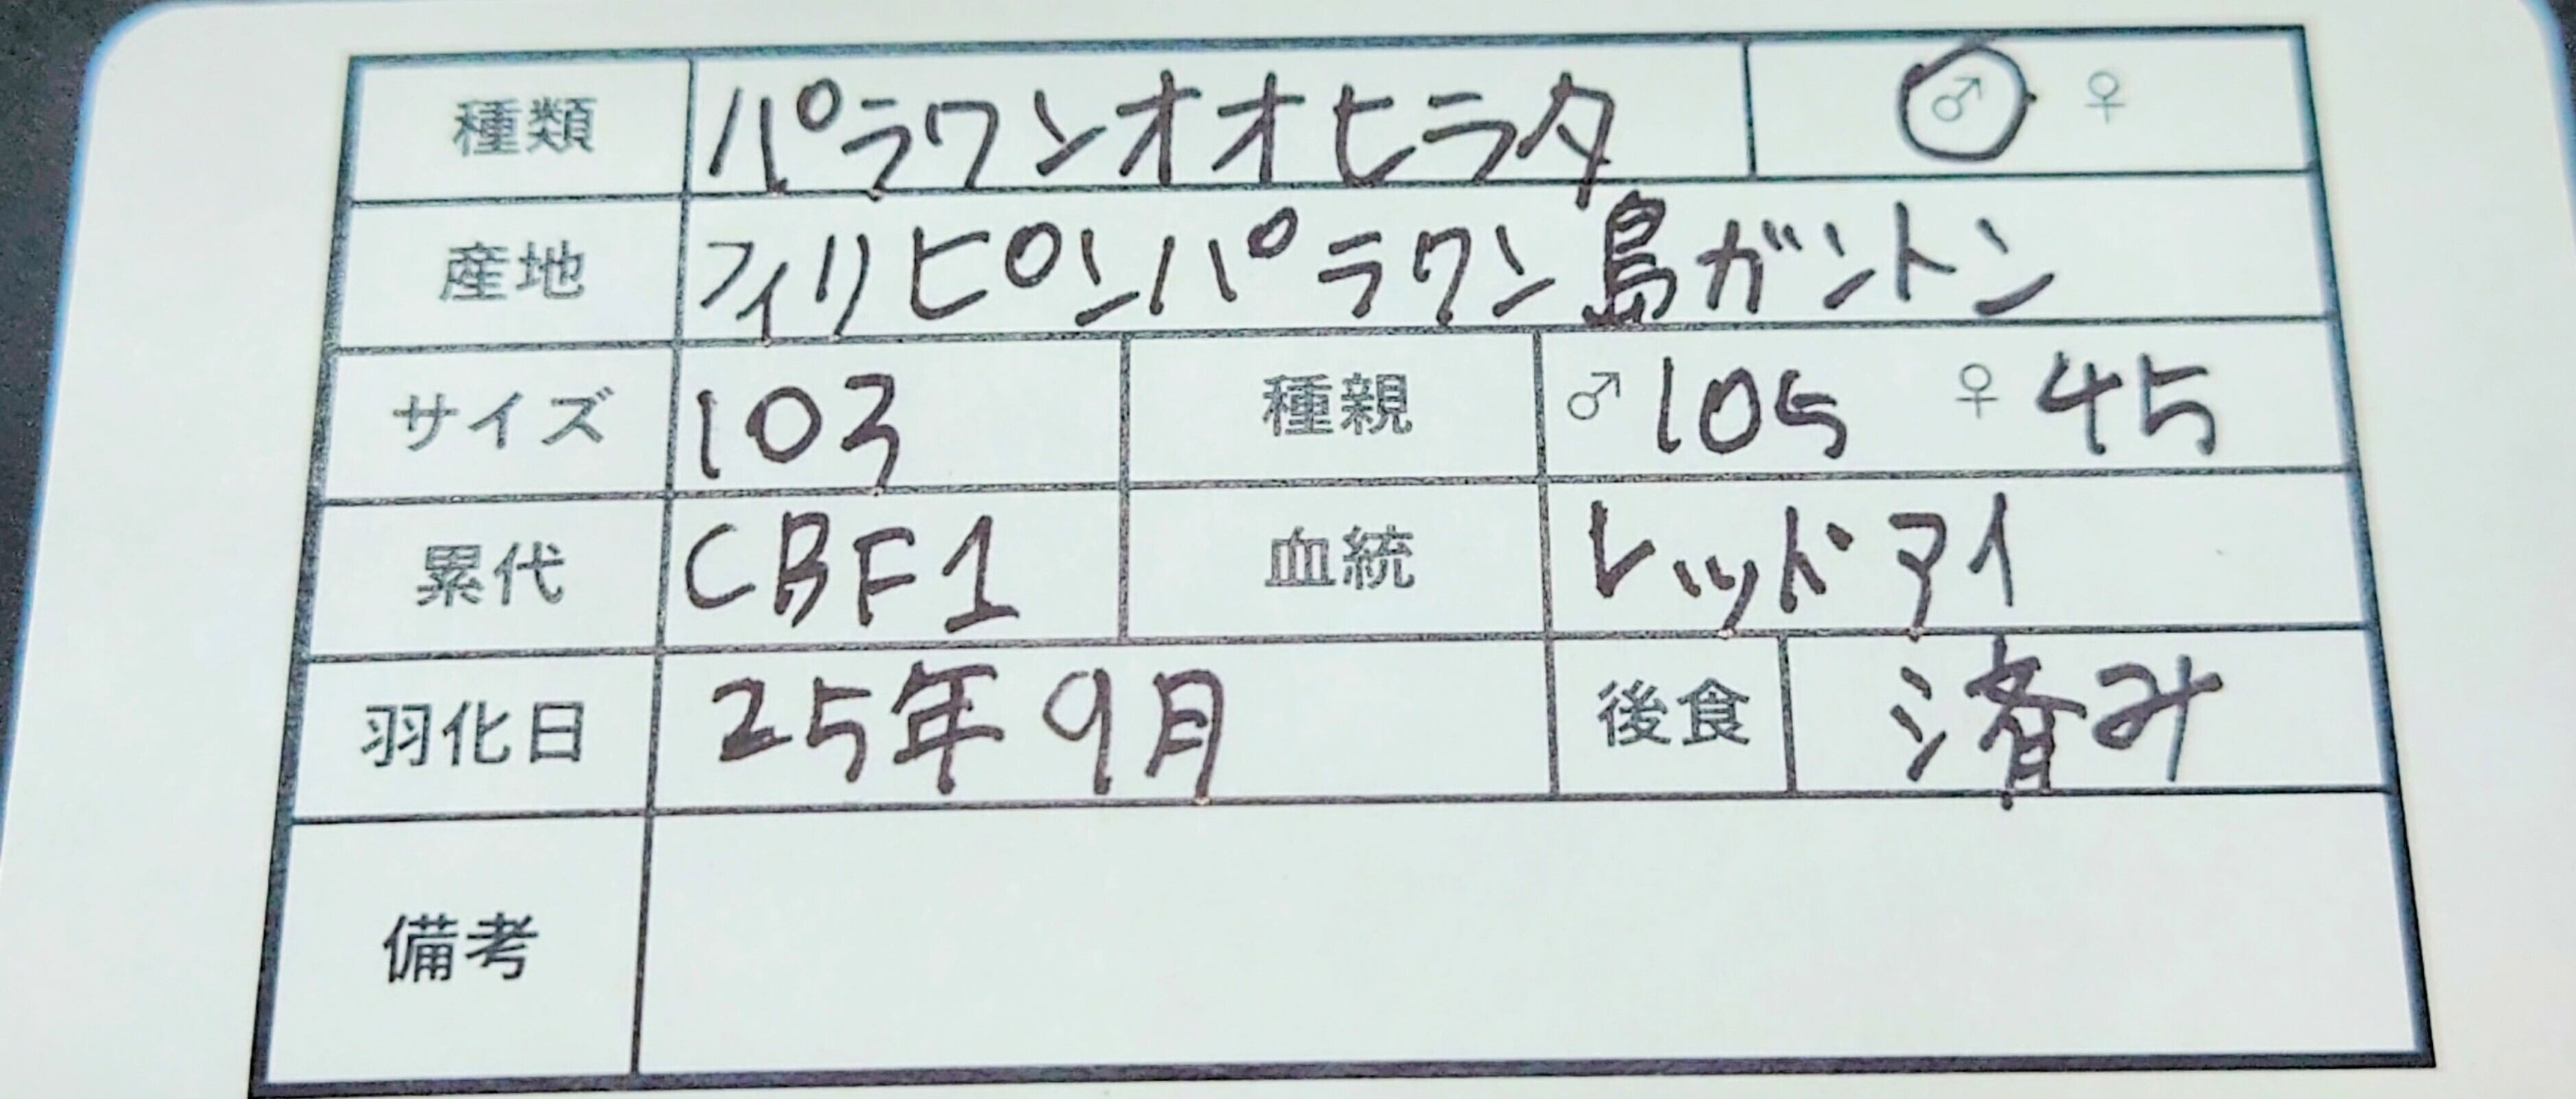 種類 パラワンオオヒラタ ♂ ♀
産地 フィリピンパラワン島ガントン
サイズ 103 種親 ♂ 105 ♀ 45
累代 CBF1 血統 レッドアイ
羽化日 25年9月 後食 済み
備考